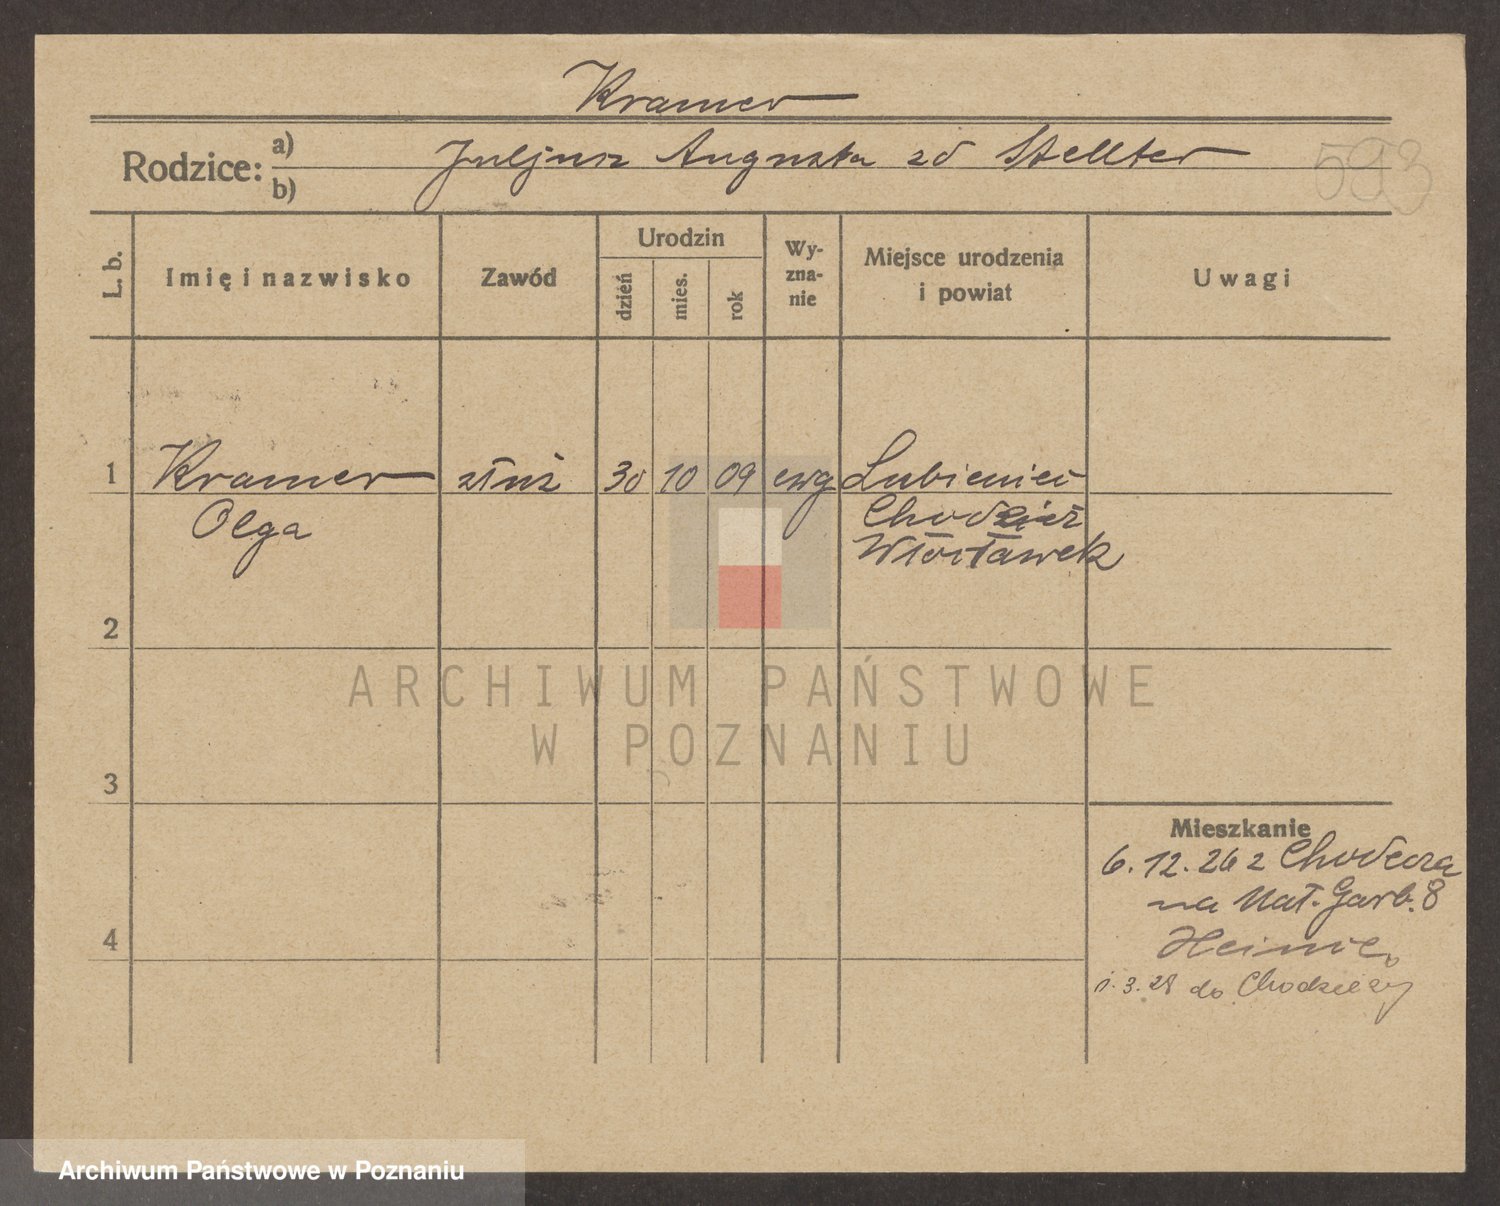 Kramer
Rodzice: a) Juljusz Augusta zd Stellter
b)
593
L. b.
Imię i nazwisko
Zawód
Urodzin
dzień
mies.
rok
Wy-
zna-
nie
Miejsce urodzenia
i powiat
Uwagi
1 Kramer służ 30 10 09 ewg Lubieniec
Olga Chodecz
Włocławek
2
3
4
Mieszkanie
6.12.26 z Chodecza
na Mał. Garb. 8
3.28 do Chodzieży
ARCHIWUM PAŃSTWOWE
W POZNANIU
Archiwum Państwowe w Poznaniu